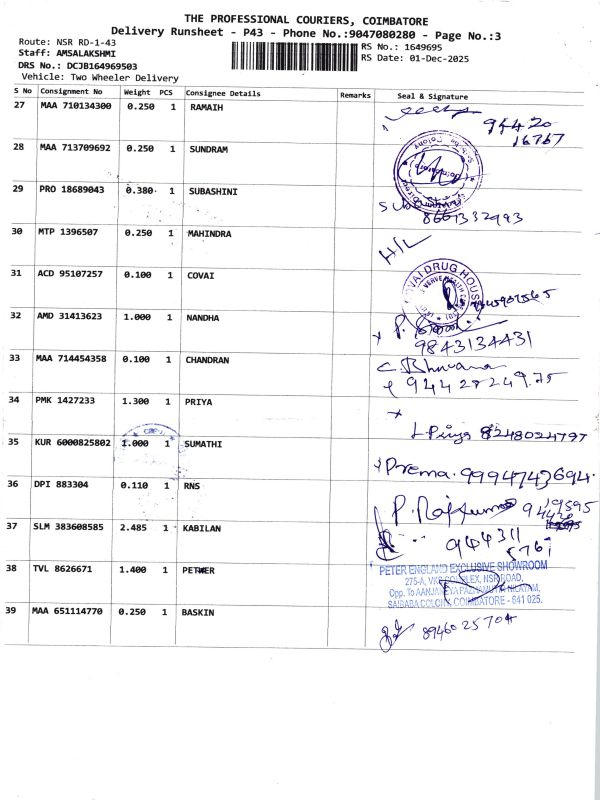 THE PROFESSIONAL COURIERS, COIMBATORE
Delivery Runsheet - P43 - Phone No.:9047080280 - Page No.:3
Route: NSR RD-1-43
RS No.: 1649695
Staff: AMSALAKSHMI
RS Date: 01-Dec-2025
DRS No.: DCJB164969503
Vehicle: Two Wheeler Delivery
S No Consignment No Weight PCS Consignee Details Remarks Seal & Signature
27 MAA 710134300 0.250 1 RAMAIH
94420
16767
28 MAA 713709692 0.250 1 SUNDRAM
29 PRO 18689043 0.380 1 SUBASHINI
8661332993
30 MTP 1396507 0.250 1 MAHINDRA
H/L
31 ACD 95107257 0.100 1 COVAI
COVAI DRUG HOUSE
32 AMD 31413623 1.000 1 NANDHA
9843134431
33 MAA 714454358 0.100 1 CHANDRAN
C. Bhuvana
34 PMK 1427233 1.300 1 PRIYA
L Priya 8248024797
35 KUR 6000825802 1.000 1 SUMATHI
Prema. 9994743694
36 DPI 883304 0.110 1 RNS
P. Rajkumar
37 SLM 383608585 2.485 1 KABILAN
944311
5761
38 TVL 8626671 1.400 1 PETHER
PETER ENGLAND EXCLUSIVE SHOWROOM
275-A, VKR COMPLEX, NSR ROAD,
Opp. To AANJANEYA
SAIBABA COLONY, COIMBATORE - 641 025.
39 MAA 651114770 0.250 1 BASKIN
8946025704